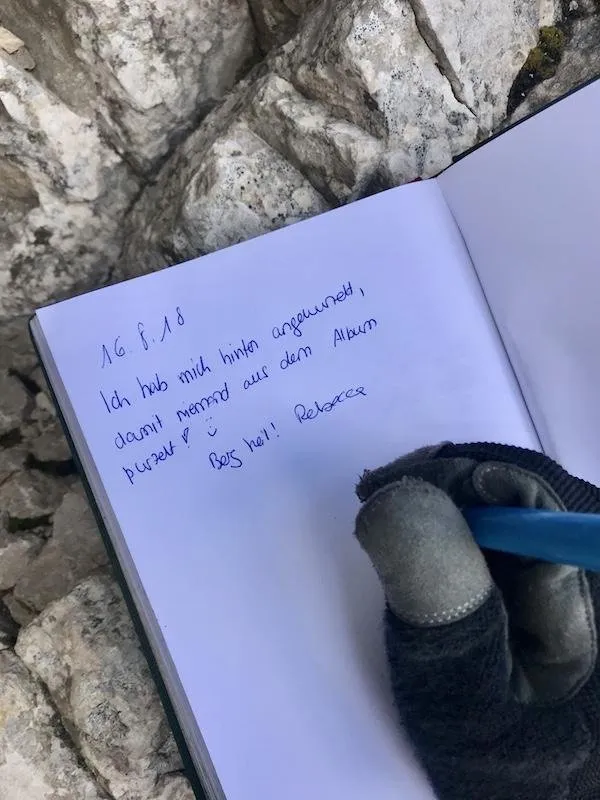 16.8.18
Ich hab mich hinten angewurzelt,
damit niemand aus dem Album
purzelt! ☺
Berg heil! Rebecca